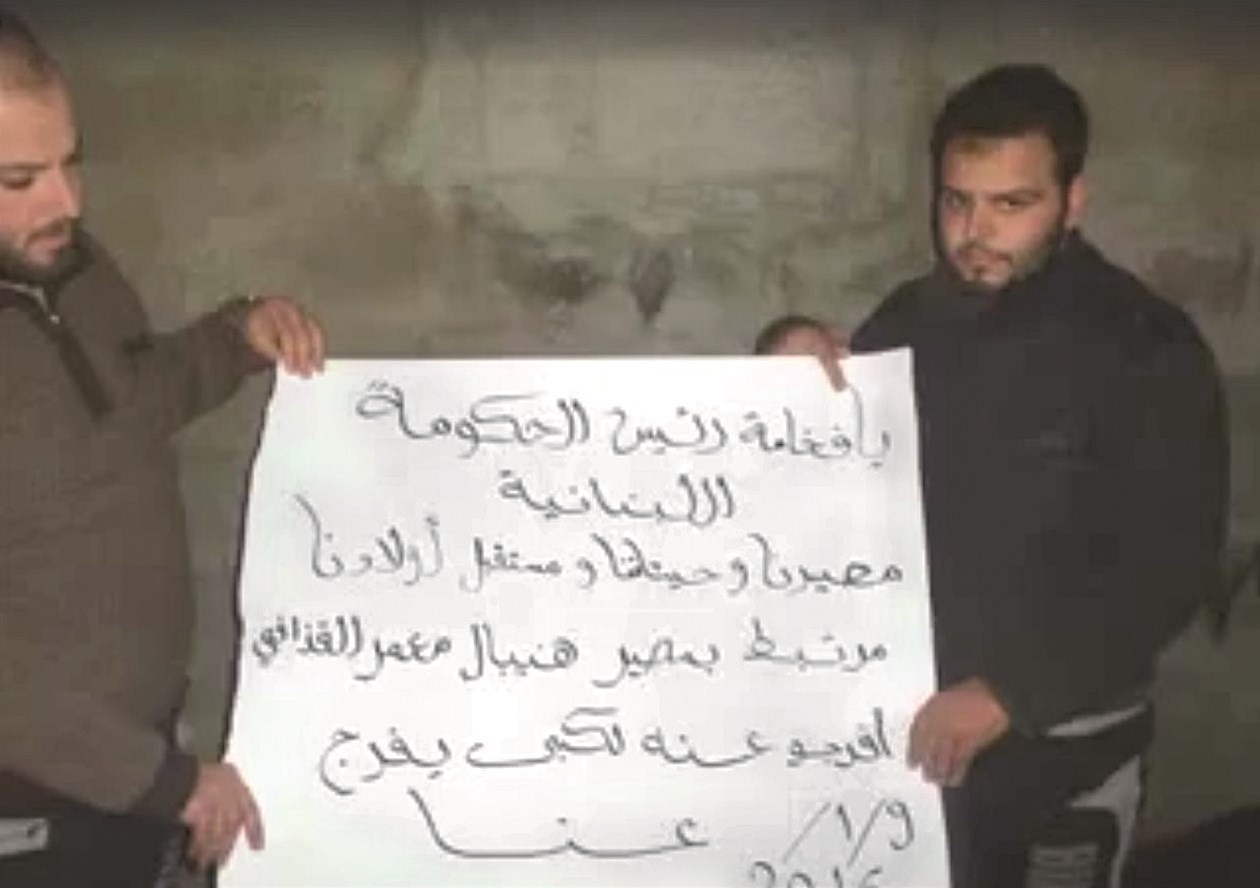 يا فخامة رئيس الحكومة
اللبنانية
مصيرنا وحيتاتنا ومستقبل أولادنا
مرتبط بمصير هنيبال معمر القذافي
افرجو عنه لكي يفرج
عنا 9/1/
2016